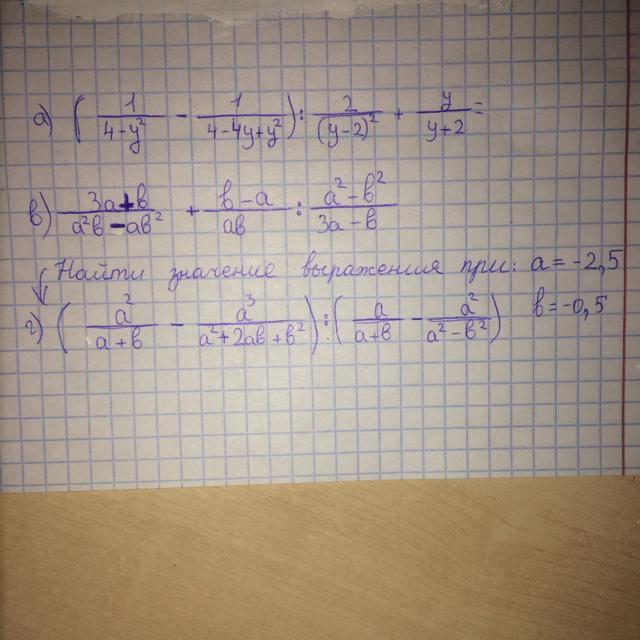 а) (1/(4-y²) - 1/(4-4y+y²)) : 2/(y-2)² + y/(y+2) =
в) (3a+b)/(a²b-ab²) + (b-a)/(ab) : (a²-b²)/(3a-b)
Найти значение выражения при: a=-2,5
г) (a²/(a+b) - a³/(a²+2ab+b²)) : (a/(a+b) - a²/(a²-b²)) b=-0,5